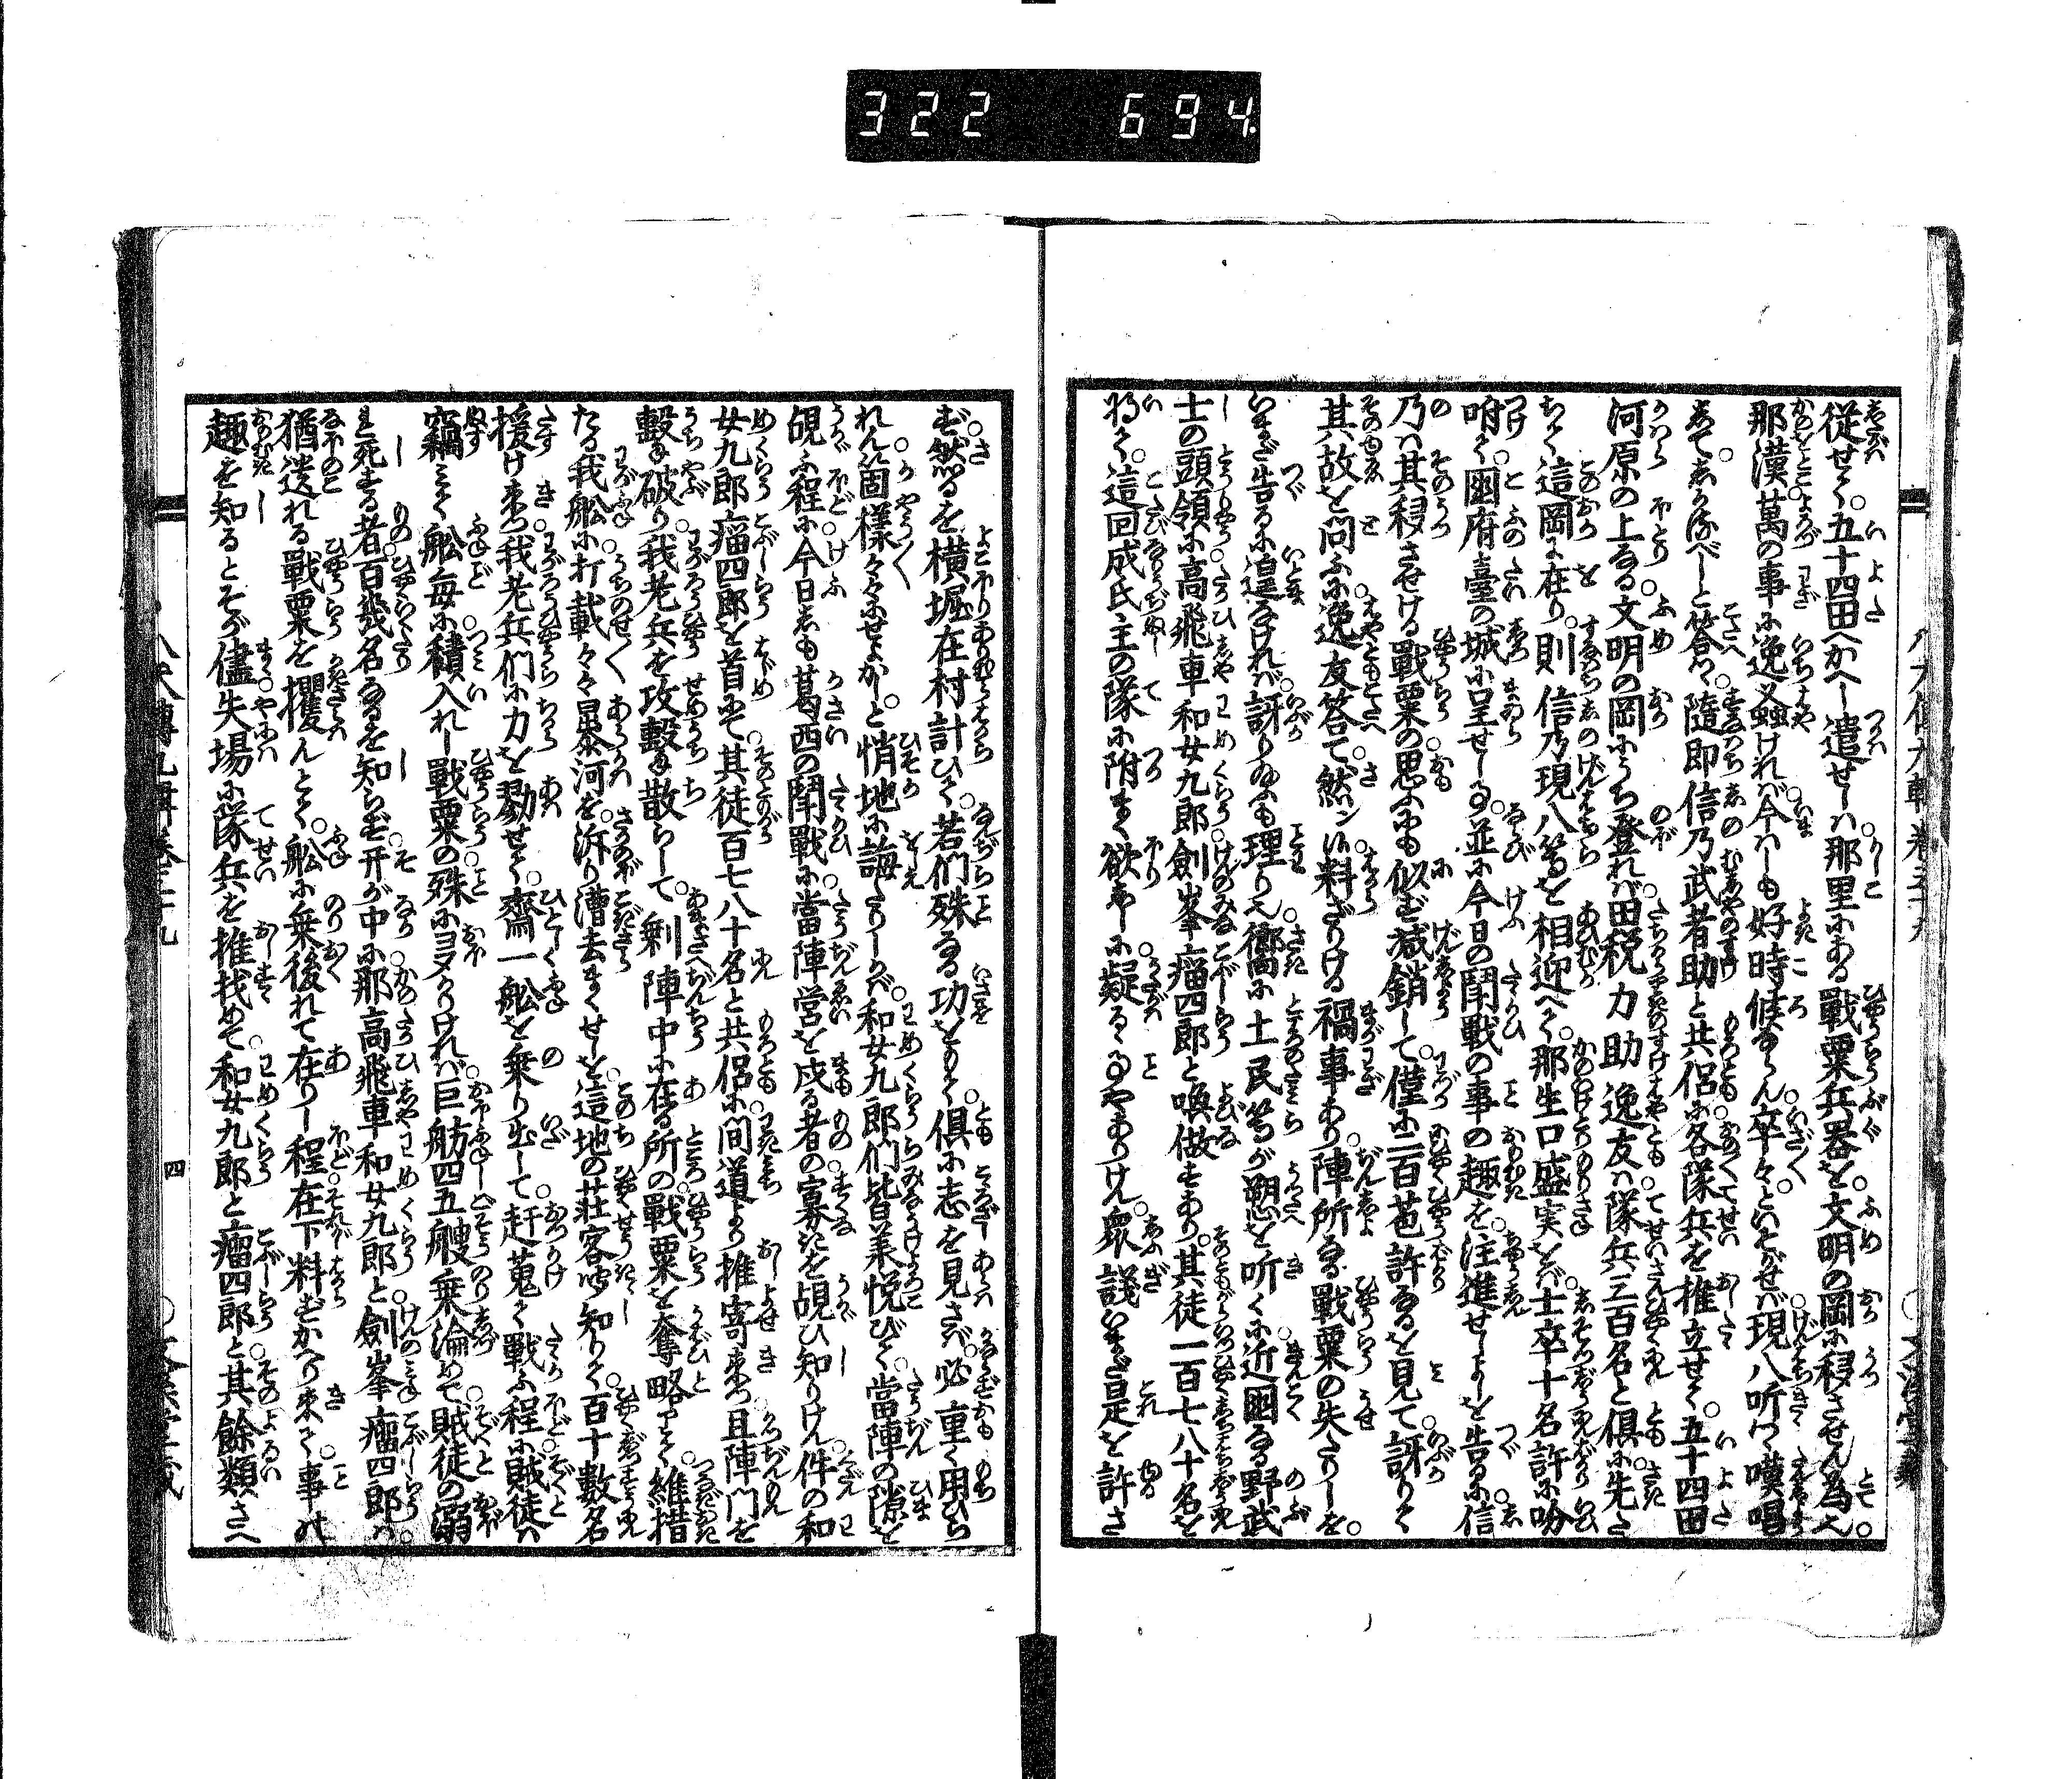 322 694.
従せて。五十四田へかへし遣せしは那里にある戦粟兵器を。文明の岡に移させん為也。
那漢萬の事に逸又蝨ければ今はしも好時候ならん卒々。といそがせば現八听つゝ嘆唱
して。しかるべしと答へつ。随即信乃武者助と共侶に各隊兵を推立せて。五十四田
河原の上なる文明の岡にうち登れば田税力助逸友は隊兵三百名と倶に先た
ちて這岡に在り。則信乃現八等を相迎へて。那生口盛実をば士卒十名許に吩
咐て。国府臺の城に呈せし事。並に今日の閗戦の事の趣を注進せしよしを告るに信
乃は其移させける戦粟の思ふにも似ず減銷して僅に二百苞許なるを見て訝りて
其故を問ふに逸友答て。然ン候料ざりける禍事あり陣所なる戦粟の失たりしを。
いまだ告るに遑なければ訝り給ふも理り也。嚮に土民等が愬を听くに近国なる野武
士の頭領に高飛車和女九郎剣峯瘤四郎と喚做すあり。其徒一百七八十名を
将て。這回成氏主の隊に附まく欲せしに疑るゝ事やありけん。衆議いまだ是を許さ
ず。然るを横堀在村計ひて。若們殊なる功をもて。倶に志を見さば。必重く用ひら
れん。箇様々々にせよかし。と悄地に誨えたりしかば。和女九郎們皆羕悦びて。當陣の隙を
覘ふ程に。今日しも葛西の閗戦に。當陣営を戍る者の寡きを覘ひ知りけん。件の和
女九郎瘤四郎を首にて。其徒百七八十名と共侶に間道より推寄来つ。且陣門を
撃破り。我老兵を攻撃散らして。剰陣中に在る所の戦粟を奪略して。維措
たる我舩に打載々々暴河を泝り漕去まくせしを。這地の荘客等知りて。百十数名
援け来つ。我老兵們に力を勠せて。齊一舩を乗り出して赶蒐て戦ふ程に。賊徒は
竊みて舩毎に積入れし戦粟の殊に夥かりければ。巨舫四五艘乗淪めて。賊徒の溺
れ死する者。百幾名なるを知らず。开が中に。那高飛車和女九郎と。剣峯瘤四郎は。
猶送れる戦粟を攫んとて。舩に乗後れて在りし程。在下料ずかへり来て。事の
趣を知るとそが儘。失場に隊兵を推找めて。和女九郎と瘤四郎と。其餘類さへ
四